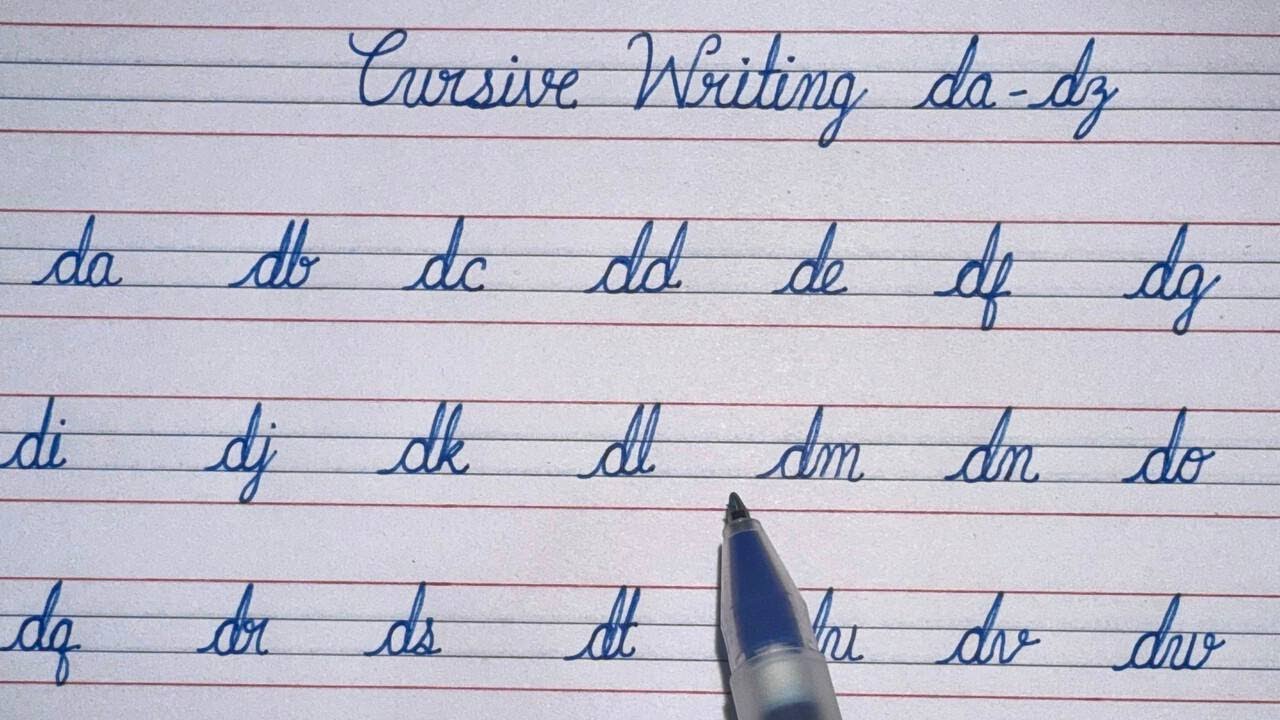 Cursive Writing da-dz
da db dc dd de df dg
di dj dk dl dm dn do
dq dr ds dt dv dw